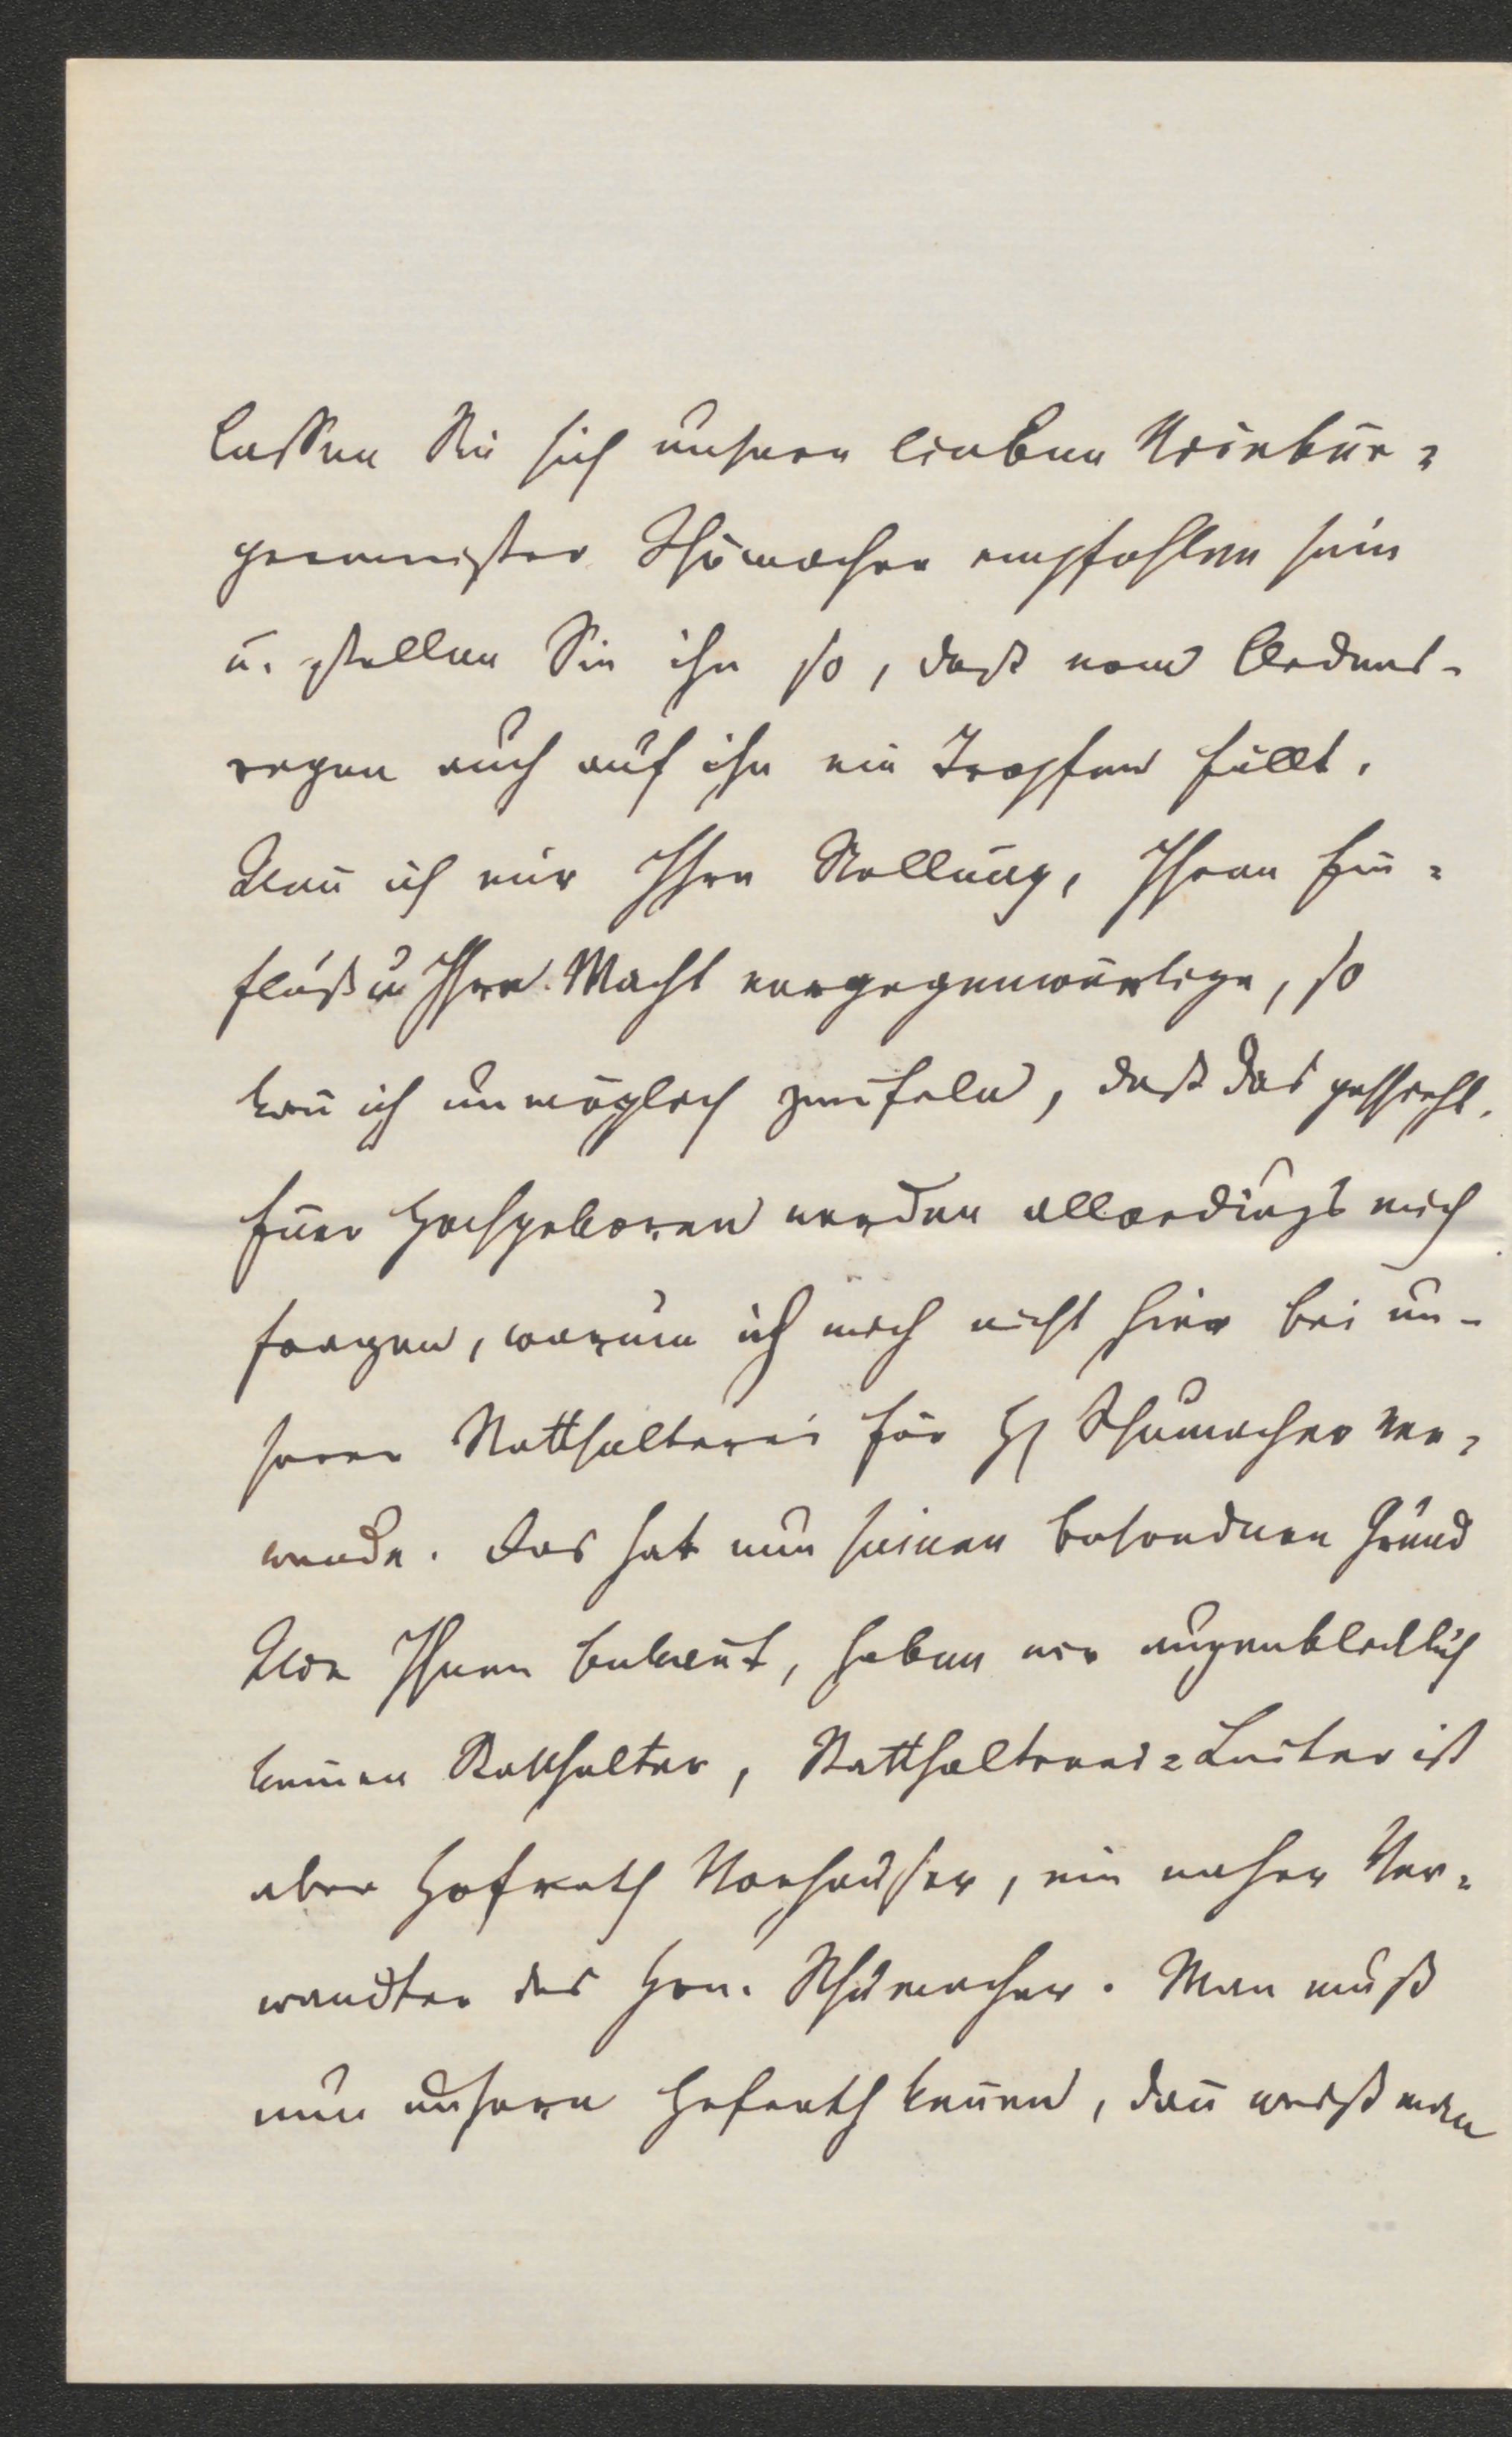 lassen Sie sich unsern lieben Vicebür=
germeister Schumacher empfohlen sein
u. stellen Sie ihn so, daß vom Ordens-
regen auch auf ihn ein Tropfen fällt.
Wen̄ ich mir Ihre Stellung, Ihren Ein=
fluß u. Ihre Macht vergegenwärtige, so
kan̄ ich unmöglich zweifeln, daß das geschieht.
Euer Hochgeboren werden allerdings mich
fragen, warum ich mich nicht hier bei un-
serer Statthalterei für H. Schumacher ver=
wende. Das hat nun seinen besondren Grund
Wie Ihnen bekan̄t, haben wir augenblicklich
keinen Statthalter, Statthalterei=Leiter ist
aber Hofrath Vorhauser, ein naher Ver=
wandter des Hrn. Schumacher. Man muß
nun unsern Hofrath ken̄en, dan̄ weiß man